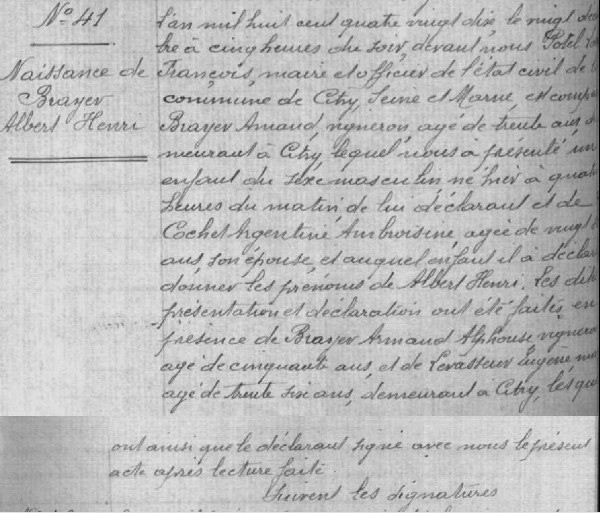 No 41
Naissance de
Brayer
Albert Henri
L'an mil huit cent quatre vingt dix le vingt
bre à cinq heures du soir, devant nous Potel
François, maire et officier de l'état civil de
commune de Citry, Seine et Marne, est comp
Brayer Armand, vigneron agé de trente ans
meurant à Citry, lequel nous à présenté un
enfant du sexe masculin né hier a quat
heures du matin, de lui déclarant et de
Cochet Argentine Ambroisine, agée de vingt
ans, son épouse, et auquel enfant il à déclar
donner les prénoms de Albert Henri. Les dit
présentation et déclaration ont été faites, en
présence de Brayer Armand Alphonse vignero
agé de cinquante ans, et de Levasseur Eugène,
agé de trente six ans, demeurant à Citry, lesqu
ont ainsi que le déclarant signé avec nous le présent
acte après lecture faite.
Suivent les signatures